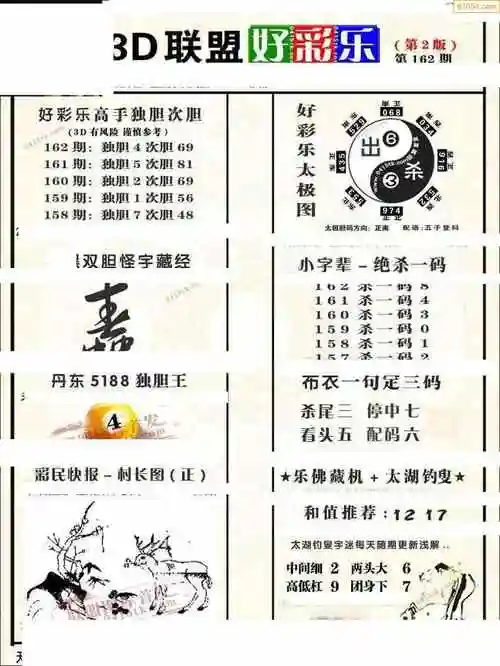 3D联盟 好彩乐
(第2版)
第162期
好彩乐高手独胆次胆
(3D有风险 谨慎参考)
162期:独胆4次胆69
161期:独胆5次胆81
160期:独胆2次胆69
159期:独胆1次胆56
158期:独胆7次胆48
好彩乐太极图
068
974
916
435
出 6
3 杀
太极胆码方向:正南 配语:五子登科
双胆怪字藏经
小字辈-绝杀一码
162 杀一码 8
161 杀一码 4
160 杀一码 3
159 杀一码 0
158 杀一码 1
157 杀一码 2
丹东5188独胆王
4
布衣一句定三码
杀尾三 停中七
看头五 配码六
彩民快报-村长图(正)
★乐佛藏机+太湖钓叟★
和值推荐:12 17
太湖钓叟字迷每天随期更新浅解..
中间细 2 两头大 6
高低杠 9 团身下 7